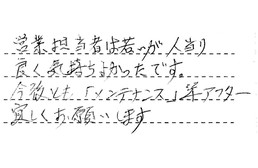 営業担当者は若いが人当り
良く気持ちよかったです。
今後とも「メンテナンス」等アフター
宜しくお願いします